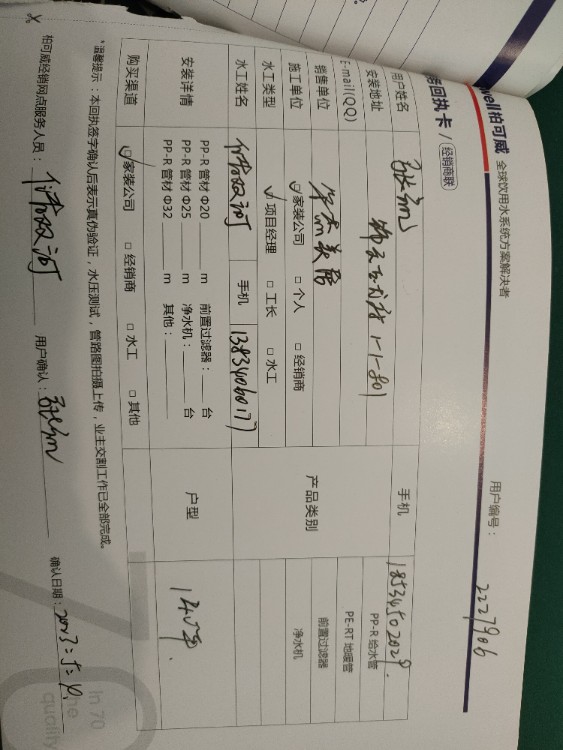 well柏可威 全球饮用水系统方案解决者
回执卡 / 经销商联
用户编号： 2227906
用户姓名
手机 18534502029
安装地址 1-1-801
E-mail(QQ)
产品类别
PP-R 给水管
PE-RT 地暖管
前置过滤器
净水机
销售单位
施工单位 ☑家装公司 □个人 □经销商
水工类型 ☑项目经理 □工长 □水工
水工姓名 手机 13834060177
安装详情
PP-R 管材 Φ20 m 前置过滤器： 台
PP-R 管材 Φ25 m 净水机： 台
PP-R 管材 Φ32 m 其他：
户型
购买渠道 ☑家装公司 □经销商 □水工 □其他
*温馨提示：本回执签字确认后表示真伪验证，水压测试，管路图拍摄上传，业主交割工作已全部完成。
柏可威经销网点服务人员： 用户确认： 确认日期：
In 70
quality